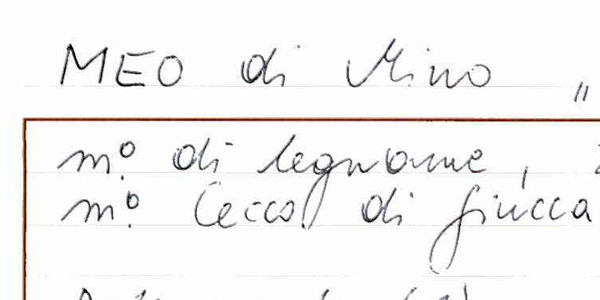 MEO di Mino "
mº di legname,
mº Cecco di Giucca